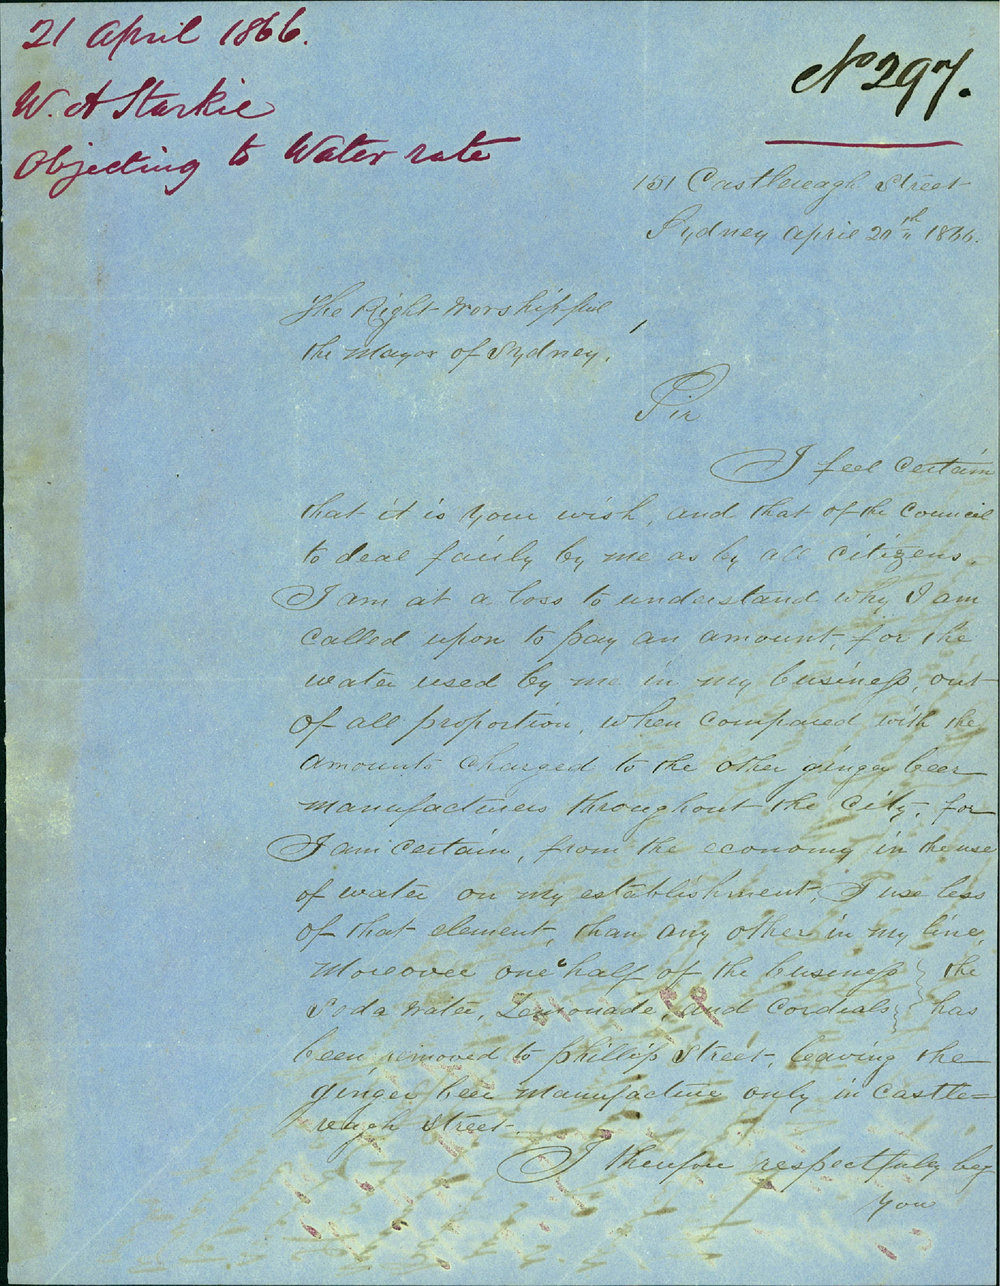 21 April 1866.
W. A Starkie
Objecting to Water rate
No 297.
151 Castlereagh Street
Sydney April 20th 1866.
The Right Worshipful
the Mayor of Sydney.
Sir
I feel certain
that it is your wish, and that of the Council
to deal fairly by me as by all citizens.
I am at a loss to understand why I am
called upon to pay an amount, for the
water used by me in my business, out
of all proportion, when compared with the
amounts charged to the other ginger beer
manufacturers throughout the city, for
I am certain, from the economy in the use
of water on my establishment, I use less
of that element, than any other in my line,
Moreover one half of the business } the
Soda Water, Lemonade, and Cordials } has
been removed to Phillip Street, leaving the
ginger beer manufacture only in Castle=
reagh Street.
I therefore respectfully beg
you